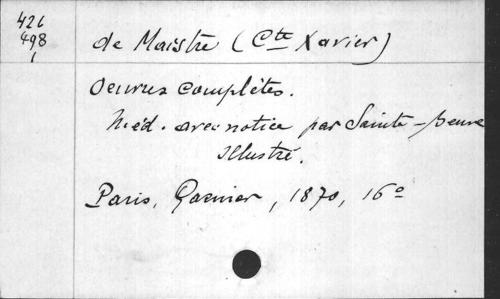 426
498
1
de Maistre (Cte Xavier)
Oeuvres complètes.
N. éd. avec notice par Sainte-Beuve
Illustré.
Paris, Garnier, 1870, 16º